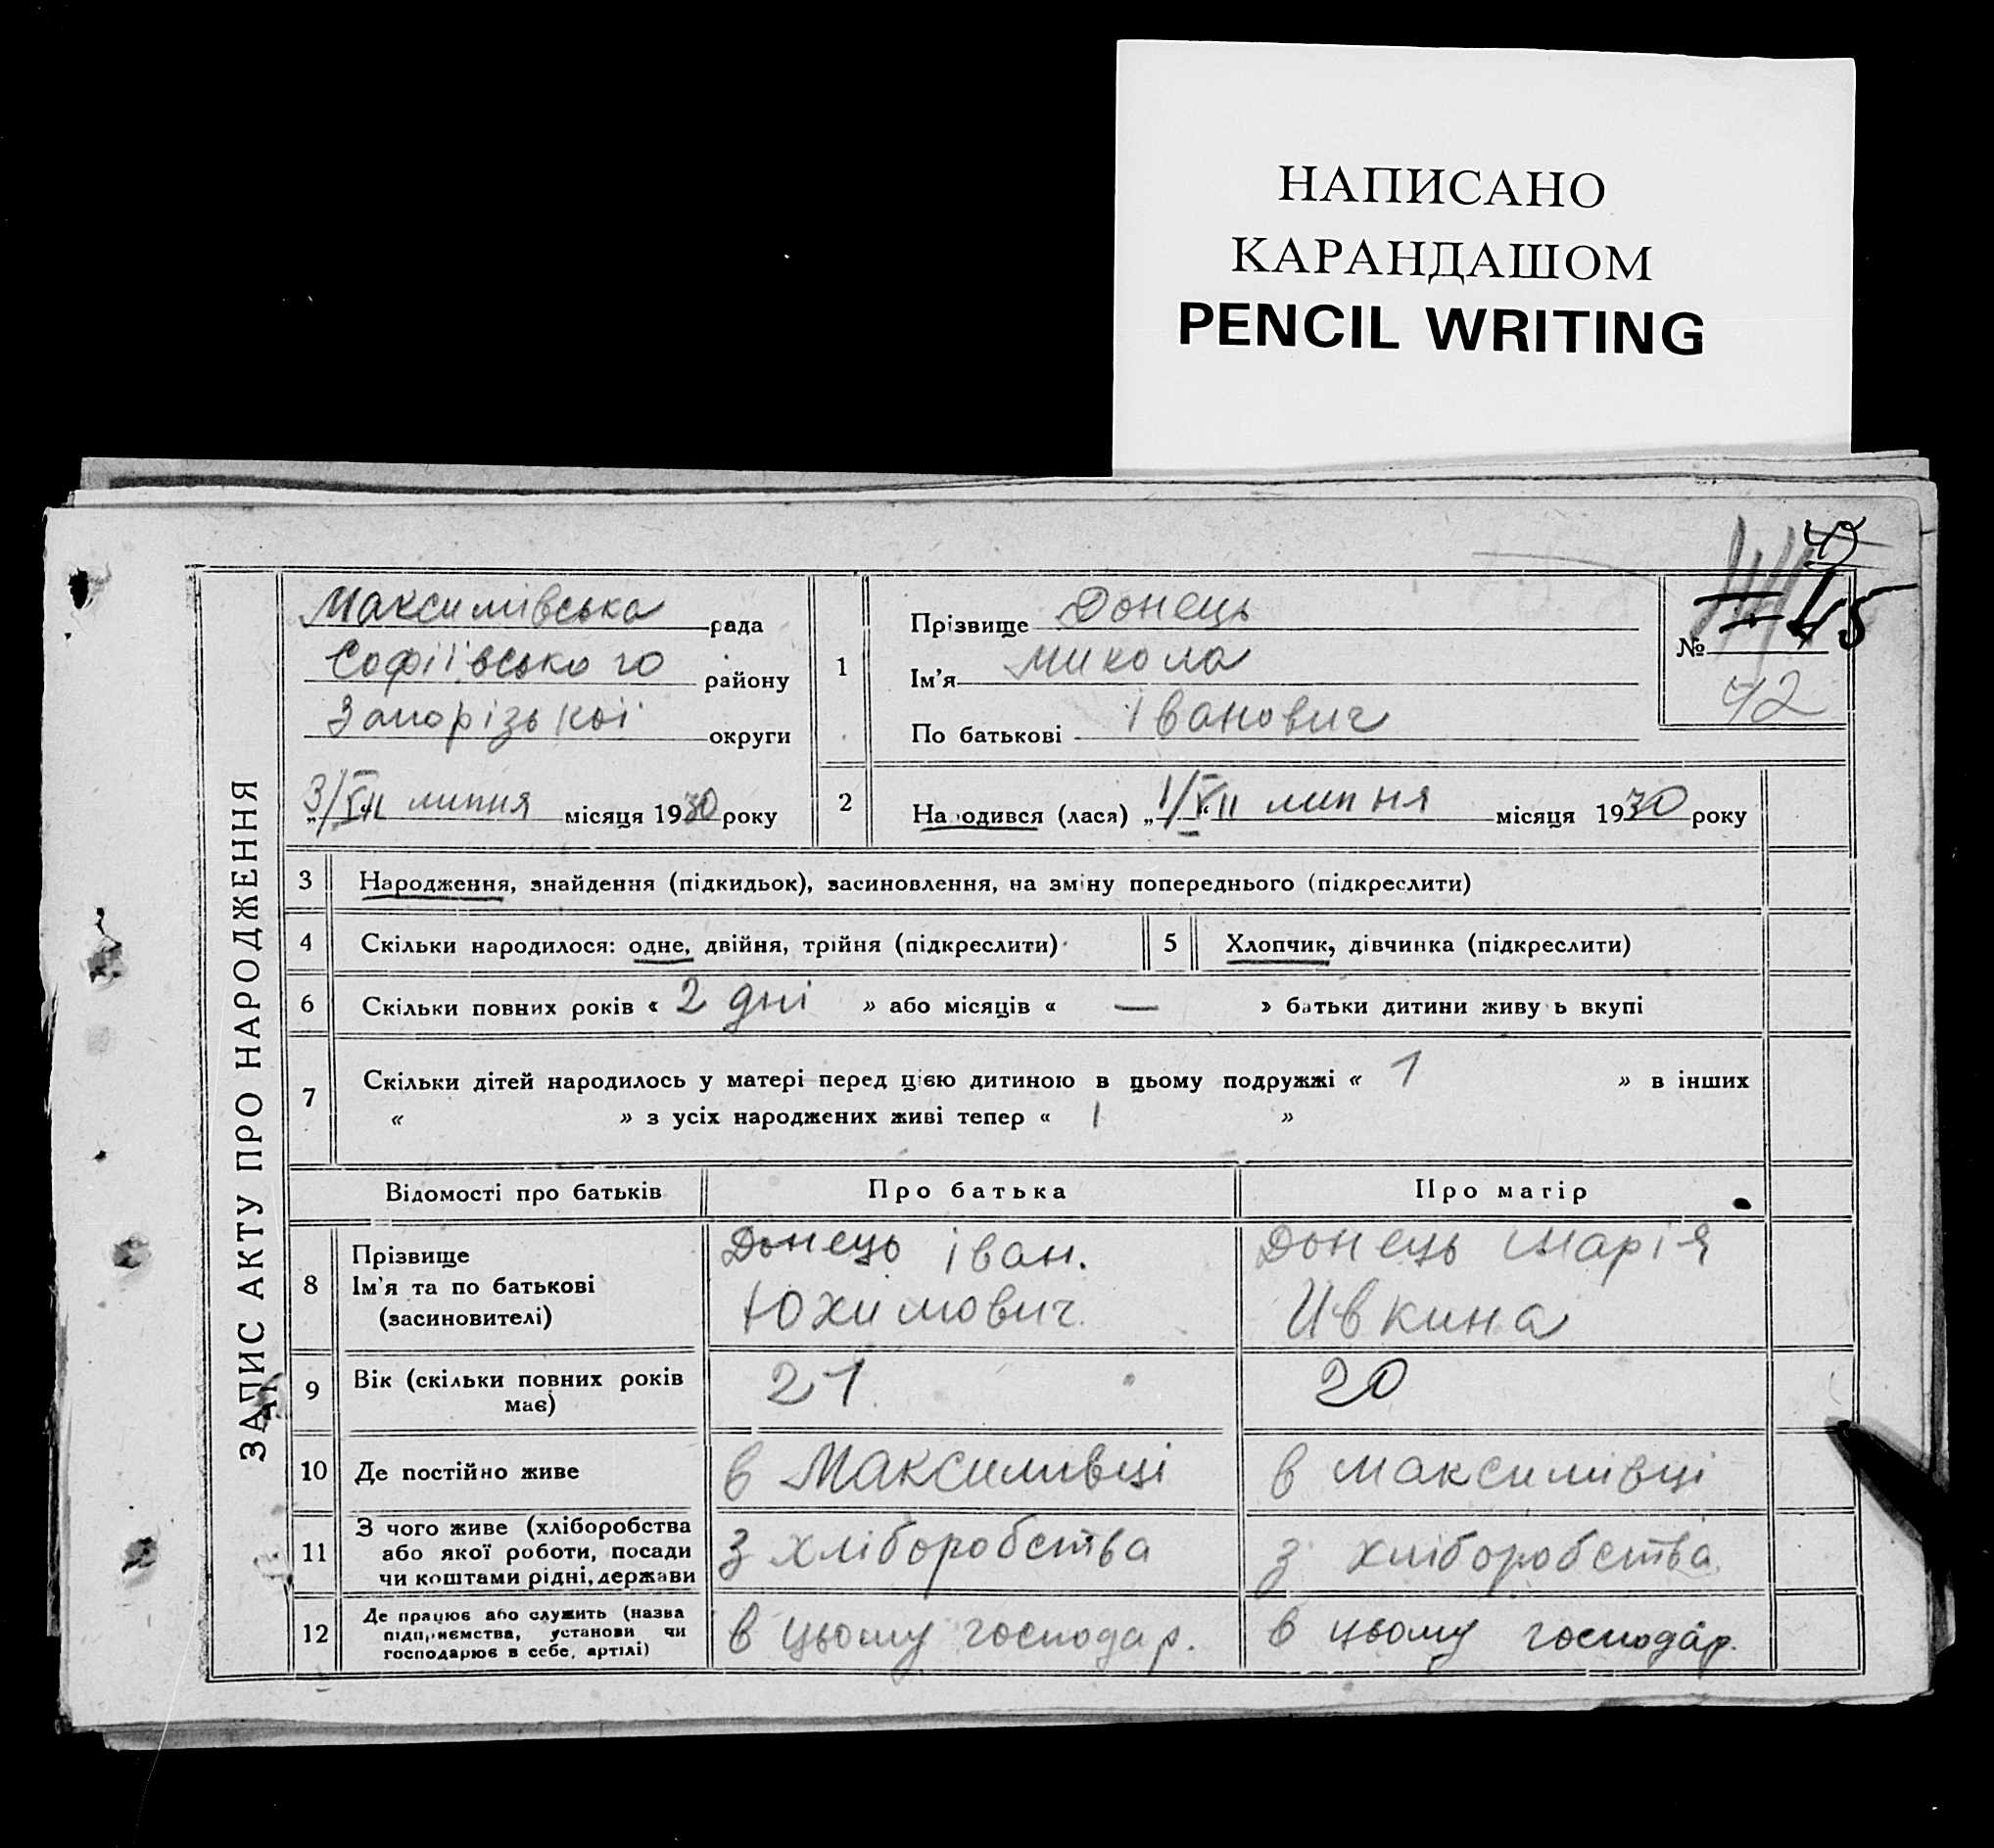 НАПИСАНО
КАРАНДАШОМ
PENCIL WRITING
ЗАПИС АКТУ ПРО НАРОДЖЕННЯ
Максимівська рада
Софіївського району
Запорізької округи
3/VII липня місяця 1930 року
1
Прізвище Донець
Ім'я Микола
По батькові Іванович
№ 45
42
2
Народився (лася) „1/VII липня місяця 1930 року
3 Народження, знайдення (підкидьок), засиновлення, на зміну попереднього (підкреслити)
4 Скільки народилося: одне, двійня, трійня (підкреслити)
5 Хлопчик, дівчинка (підкреслити)
6 Скільки повних років « 2 дні » або місяців « — » батьки дитини живу ь вкупі
7 Скільки дітей народилось у матері перед цією дитиною в цьому подружжі « 1 » в інших
« » з усіх народжених живі тепер « 1 »
Відомості про батьків Про батька Про матір
8 Прізвище
Ім'я та по батькові
(засиновителі)
Донець Іван.
Юхимович
Донець Марія
Ивкина
9 Вік (скільки повних років
має)
21
20
10 Де постійно живе
в Максимівці
в Максимівці
11 З чого живе (хліборобства
або якої роботи, посади
чи коштами рідні, держави
з хліборобства
з хліборобства
12 Де працює або служить (назва
підприємства, установи чи
господарює в себе, артілі)
в цьому господар.
в цьому господар.